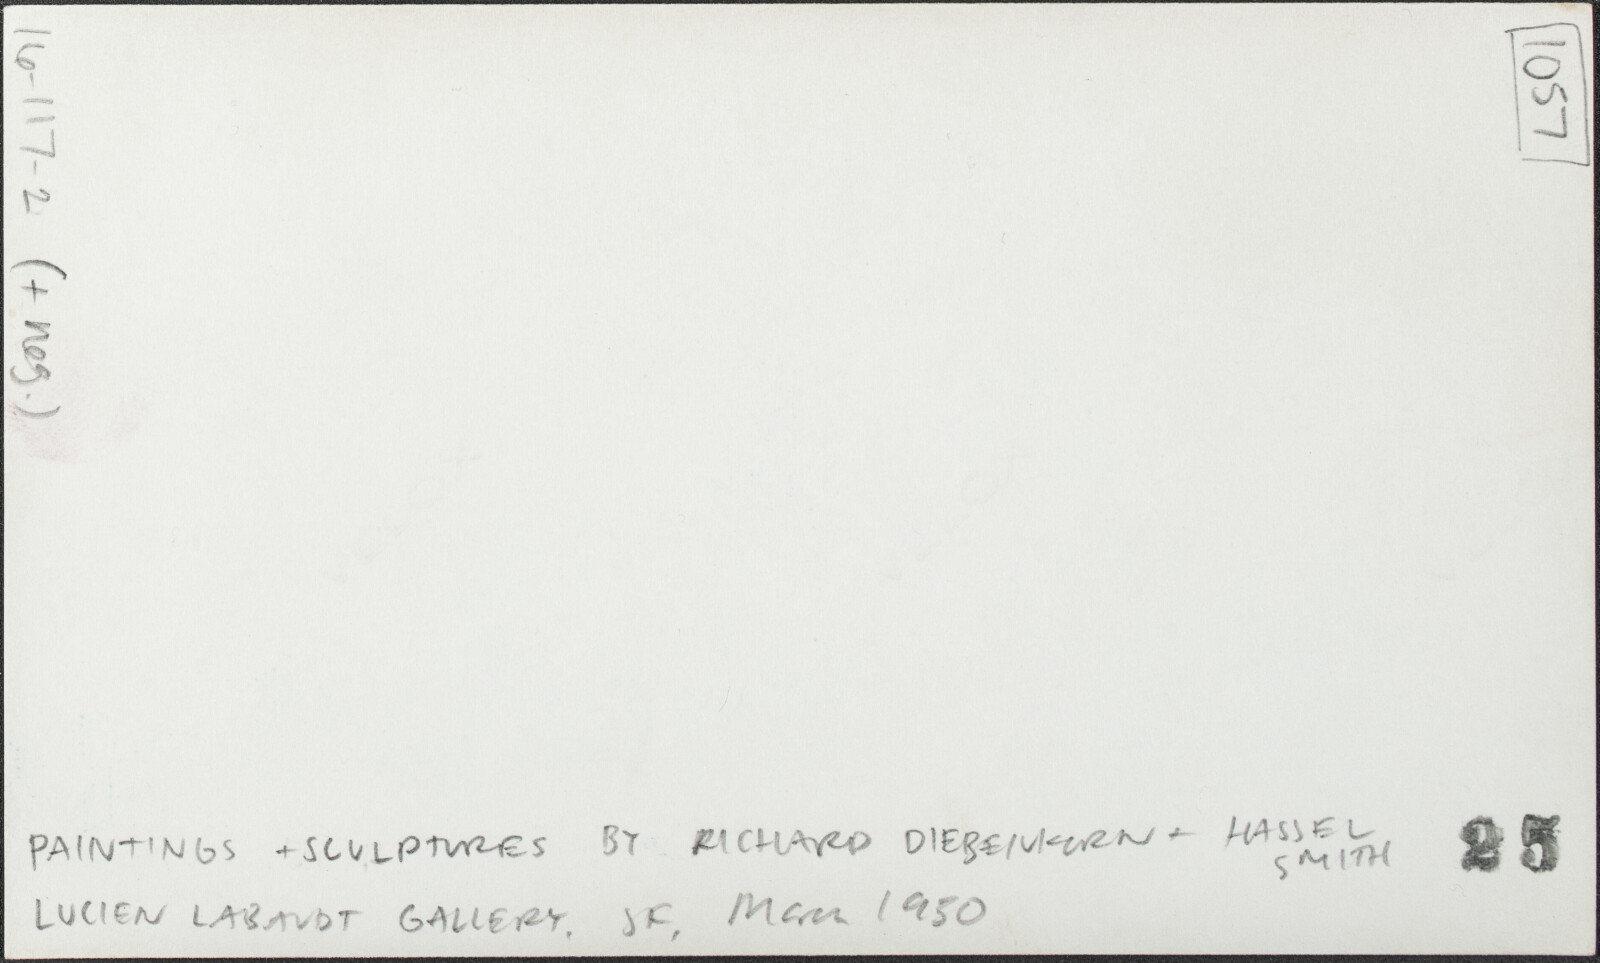 16-117-2 (+ neg.)
1057
PAINTINGS + SCULPTURES BY RICHARD DIEBENKORN + HASSEL
SMITH
25
LUCIEN LABAUDT GALLERY, SF, March 1950